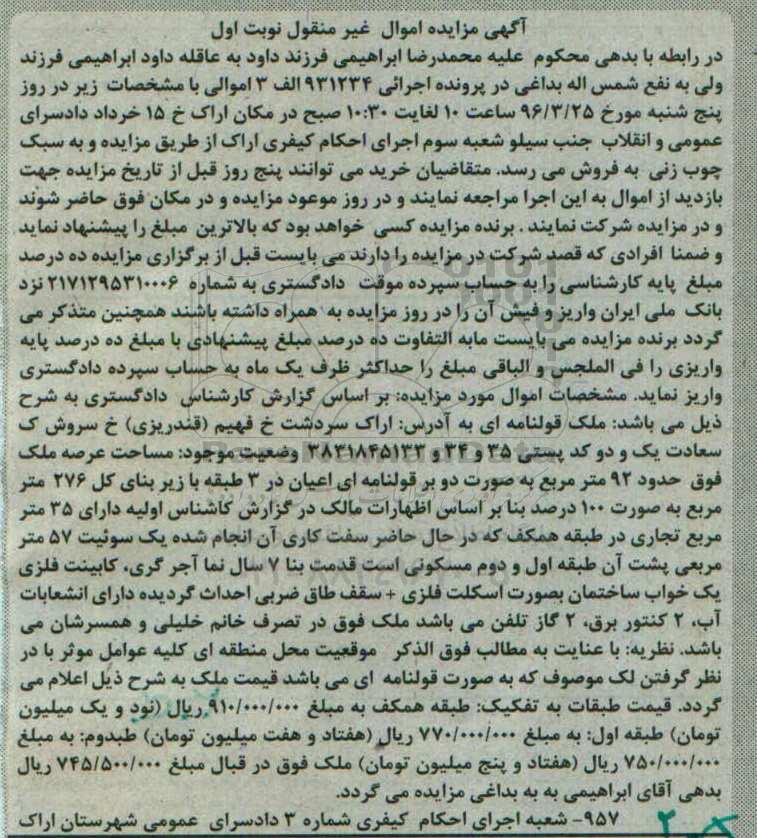 آگهی مزایده اموال غیر منقول نوبت اول
در رابطه با بدهی محکوم علیه محمدرضا ابراهیمی فرزند داود به عاقله داود ابراهیمی فرزند
ولی به نفع شمس اله بداغی در پرونده اجرائی ۹۳۱۲۳۴ الف ۳ اموالی با مشخصات زیر در روز
پنج شنبه مورخ ۹۶/۳/۲۵ ساعت ۱۰ لغایت ۱۰:۳۰ صبح در مکان اراک خ ۱۵ خرداد دادسرای
عمومی و انقلاب جنب سیلو شعبه سوم اجرای احکام کیفری اراک از طریق مزایده و به سبک
چوب زنی به فروش می رسد. متقاضیان خرید می توانند پنج روز قبل از تاریخ مزایده جهت
بازدید از اموال به این اجرا مراجعه نمایند و در روز موعود مزایده و در مکان فوق حاضر شوند
و در مزایده شرکت نمایند . برنده مزایده کسی خواهد بود که بالاترین مبلغ را پیشنهاد نماید
و ضمنا افرادی که قصد شرکت در مزایده را دارند می بایست قبل از برگزاری مزایده ده درصد
مبلغ پایه کارشناسی را به حساب سپرده موقت دادگستری به شماره ۲۱۷۱۲۹۵۳۱۰۰۰۶ نزد
بانک ملی ایران واریز و فیش آن را در روز مزایده به همراه داشته باشند همچنین متذکر می
گردد برنده مزایده می بایست مابه التفاوت ده درصد مبلغ پیشنهادی با مبلغ ده درصد پایه
واریزی را فی الملجس و الباقی مبلغ را حداکثر ظرف یک ماه به حساب سپرده دادگستری
واریز نماید. مشخصات اموال مورد مزایده: بر اساس گزارش کارشناس دادگستری به شرح
ذیل می باشد: ملک قولنامه ای به آدرس: اراک سردشت خ فهیم (قندریزی) خ سروش ک
سعادت یک و دو کد پستی ۳۵ و ۳۴ و ۳۸۳۱۸۴۵۱۳۳ وضعیت موجود: مساحت عرصه ملک
فوق حدود ۹۲ متر مربع به صورت دو بر قولنامه ای اعیان در ۳ طبقه با زیر بنای کل ۲۷۶ متر
مربع به صورت ۱۰۰ درصد بنا بر اساس اظهارات مالک در گزارش کاشناس اولیه دارای ۳۵ متر
مربع تجاری در طبقه همکف که در حال حاضر سفت کاری آن انجام شده یک سوئیت ۵۷ متر
مربعی پشت آن طبقه اول و دوم مسکونی است قدمت بنا ۷ سال نما آجر گری، کابینت فلزی
یک خواب ساختمان بصورت اسکلت فلزی + سقف طاق ضربی احداث گردیده دارای انشعابات
آب، ۲ کنتور برق، ۲ گاز تلفن می باشد ملک فوق در تصرف خانم خلیلی و همسرشان می
باشد. نظریه: با عنایت به مطالب فوق الذکر موقعیت محل منطقه ای کلیه عوامل موثر با در
نظر گرفتن لک موصوف که به صورت قولنامه ای می باشد قیمت ملک به شرح ذیل اعلام می
گردد. قیمت طبقات به تفکیک: طبقه همکف به مبلغ ۹۱۰/۰۰۰/۰۰۰ ریال (نود و یک میلیون
تومان) طبقه اول: به مبلغ ۷۷۰/۰۰۰/۰۰۰ ریال (هفتاد و هفت میلیون تومان) طبدوم: به مبلغ
۷۵۰/۰۰۰/۰۰۰ ریال (هفتاد و پنج میلیون تومان) ملک فوق در قبال مبلغ ۷۴۵/۵۰۰/۰۰۰ ریال
بدهی آقای ابراهیمی به به بداغی مزایده می گردد.
۹۵۷- شعبه اجرای احکام کیفری شماره ۳ دادسرای عمومی شهرستان اراک